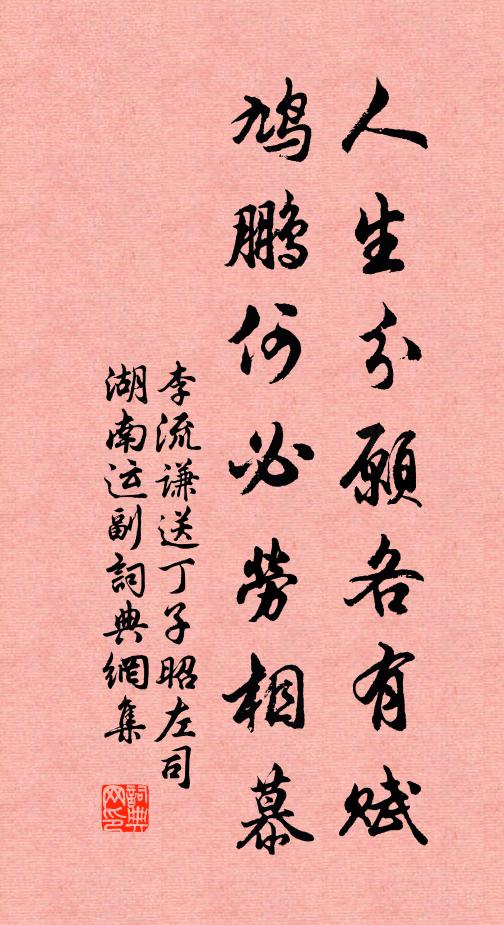 人生分愿各有赋
鸠鹏何必劳相慕
李流谦送丁子昭左司
湖南运副詞典網集
詞典
网印